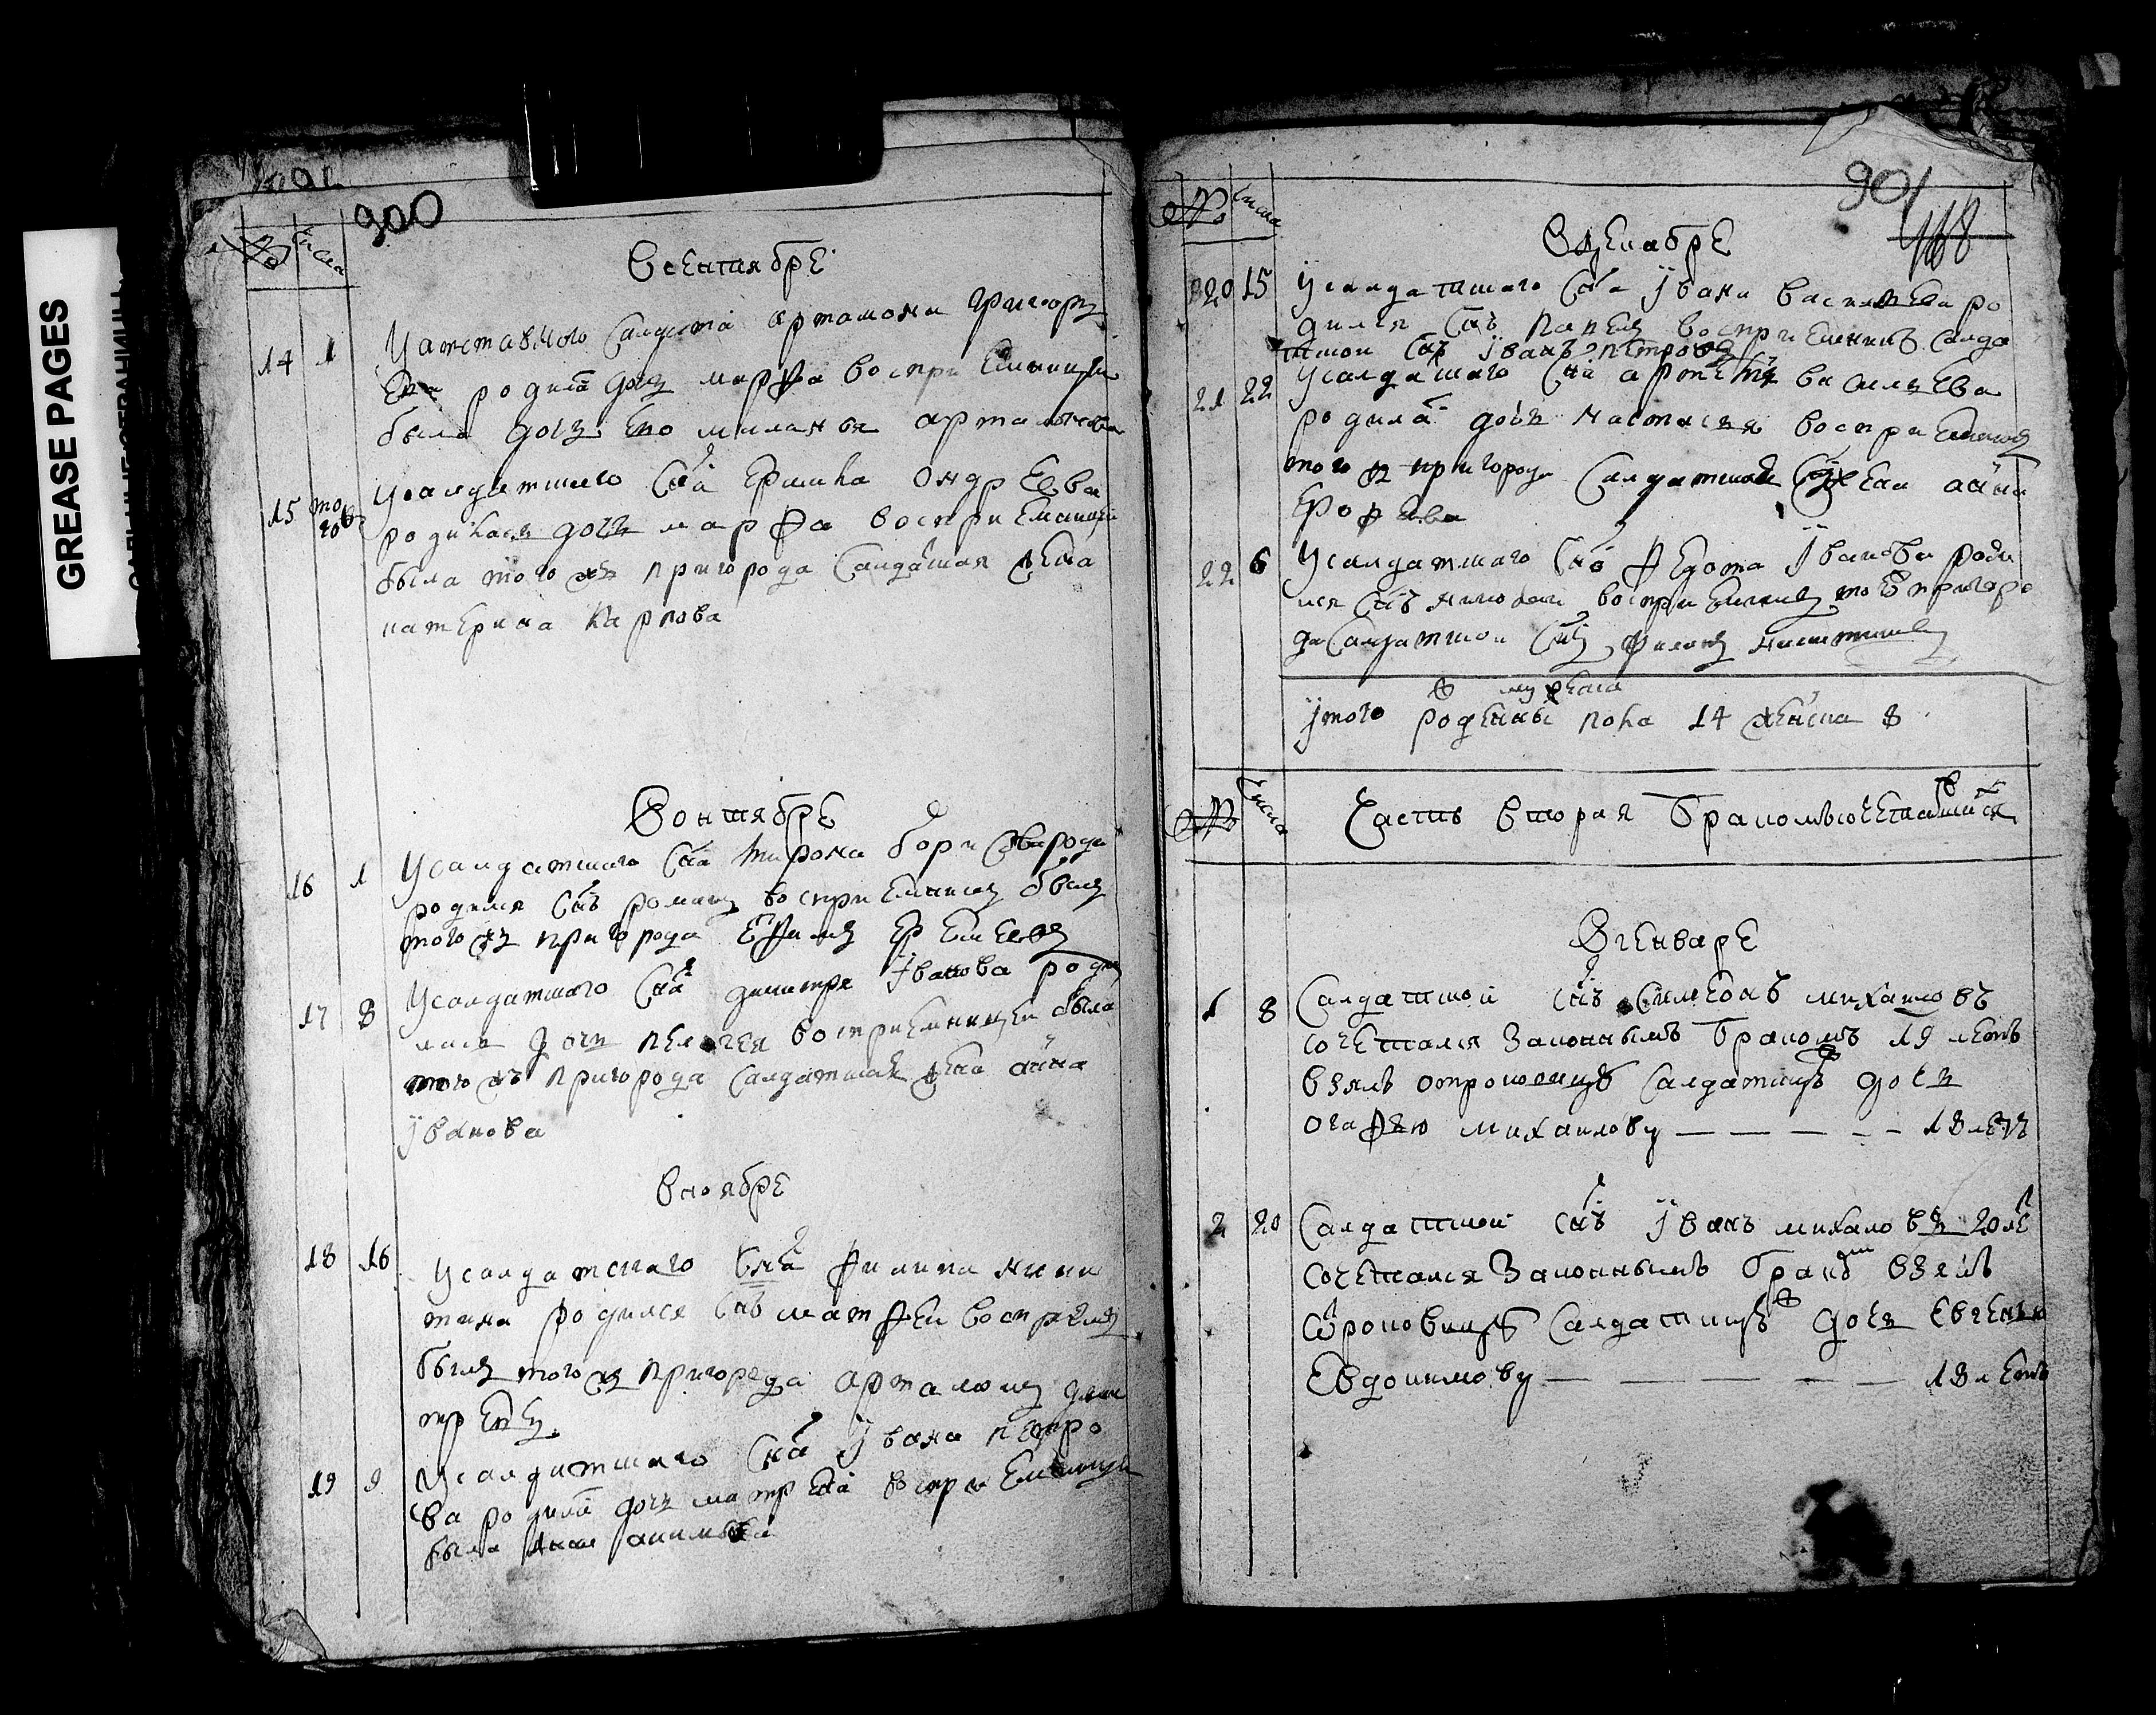 GREASE PAGES
900
№ числа
Всентябре
14 1 У атставного салдата артамона григорь
ева родилас дочь марфа восприемницеи
была дочь ево маланья артамонова
15 того ж Усалдатцкого сна ермила ондреева
родилась дочь марфа восприемницеи
была того жъ пригорода салдацкая жена
катерина карпова
Воктябре
16 1 Усалдатцкого сна мирона борисова роди
родился снъ романъ восприемникъ былъ
того жъ пригорода ефимъ еремеевъ
17 8 Усалдатцкого сна дмитрея Iванова роди
лась дочь пелагея восприемницеи была
того жъ пригорода салдатцкая жена анна
Iванова
Вноябре
18 16 Усалдатцкаго сна филипа ники
тина родился снъ матфеи восприем
былъ того жъ пригорода артамонъ дми
треевъ
19 9 Усалдатцкаго сна Iвана петро
ва родилас дочь матрена восприемницеи
была
901
468
№ числа
Вдекабре
20 15 Усалдатцкого сна Iвана василева ро
дился снъ восприемникъ салда
цкои снъ Iванъ петровъ
21 22 Усалдацкого сна артемья васильева
родилас дочь настасья восприемницеи
того жъ пригорода салдатцкая жена анна
22 6 Усалдатцкого сна федота Iванова роди
лся снъ николаи восприемникъ того пригоро
да салдатцкои снъ филипъ никитинъ
Iтого рожденныхъ мужеска
пола 14 женска 8
№ числа
Часть вторая бракомъсочетавшихся
Вгенваре
1 8 Салдатцкои снъ симеонъ михаиловъ
сочетался законнымъ бракомъ 19 летъ
взялъ отроковицу салдатцкую дочь
огафью михаилову — — — — — 18 летъ
2 20 Салдатцкои снъ Iванъ михаловъ 20 ле
сочетался законнымъ бракомъ взялъ
отроковицу салдатцкую дочь евгенью
Евдокимову — — — — — 18 летъ